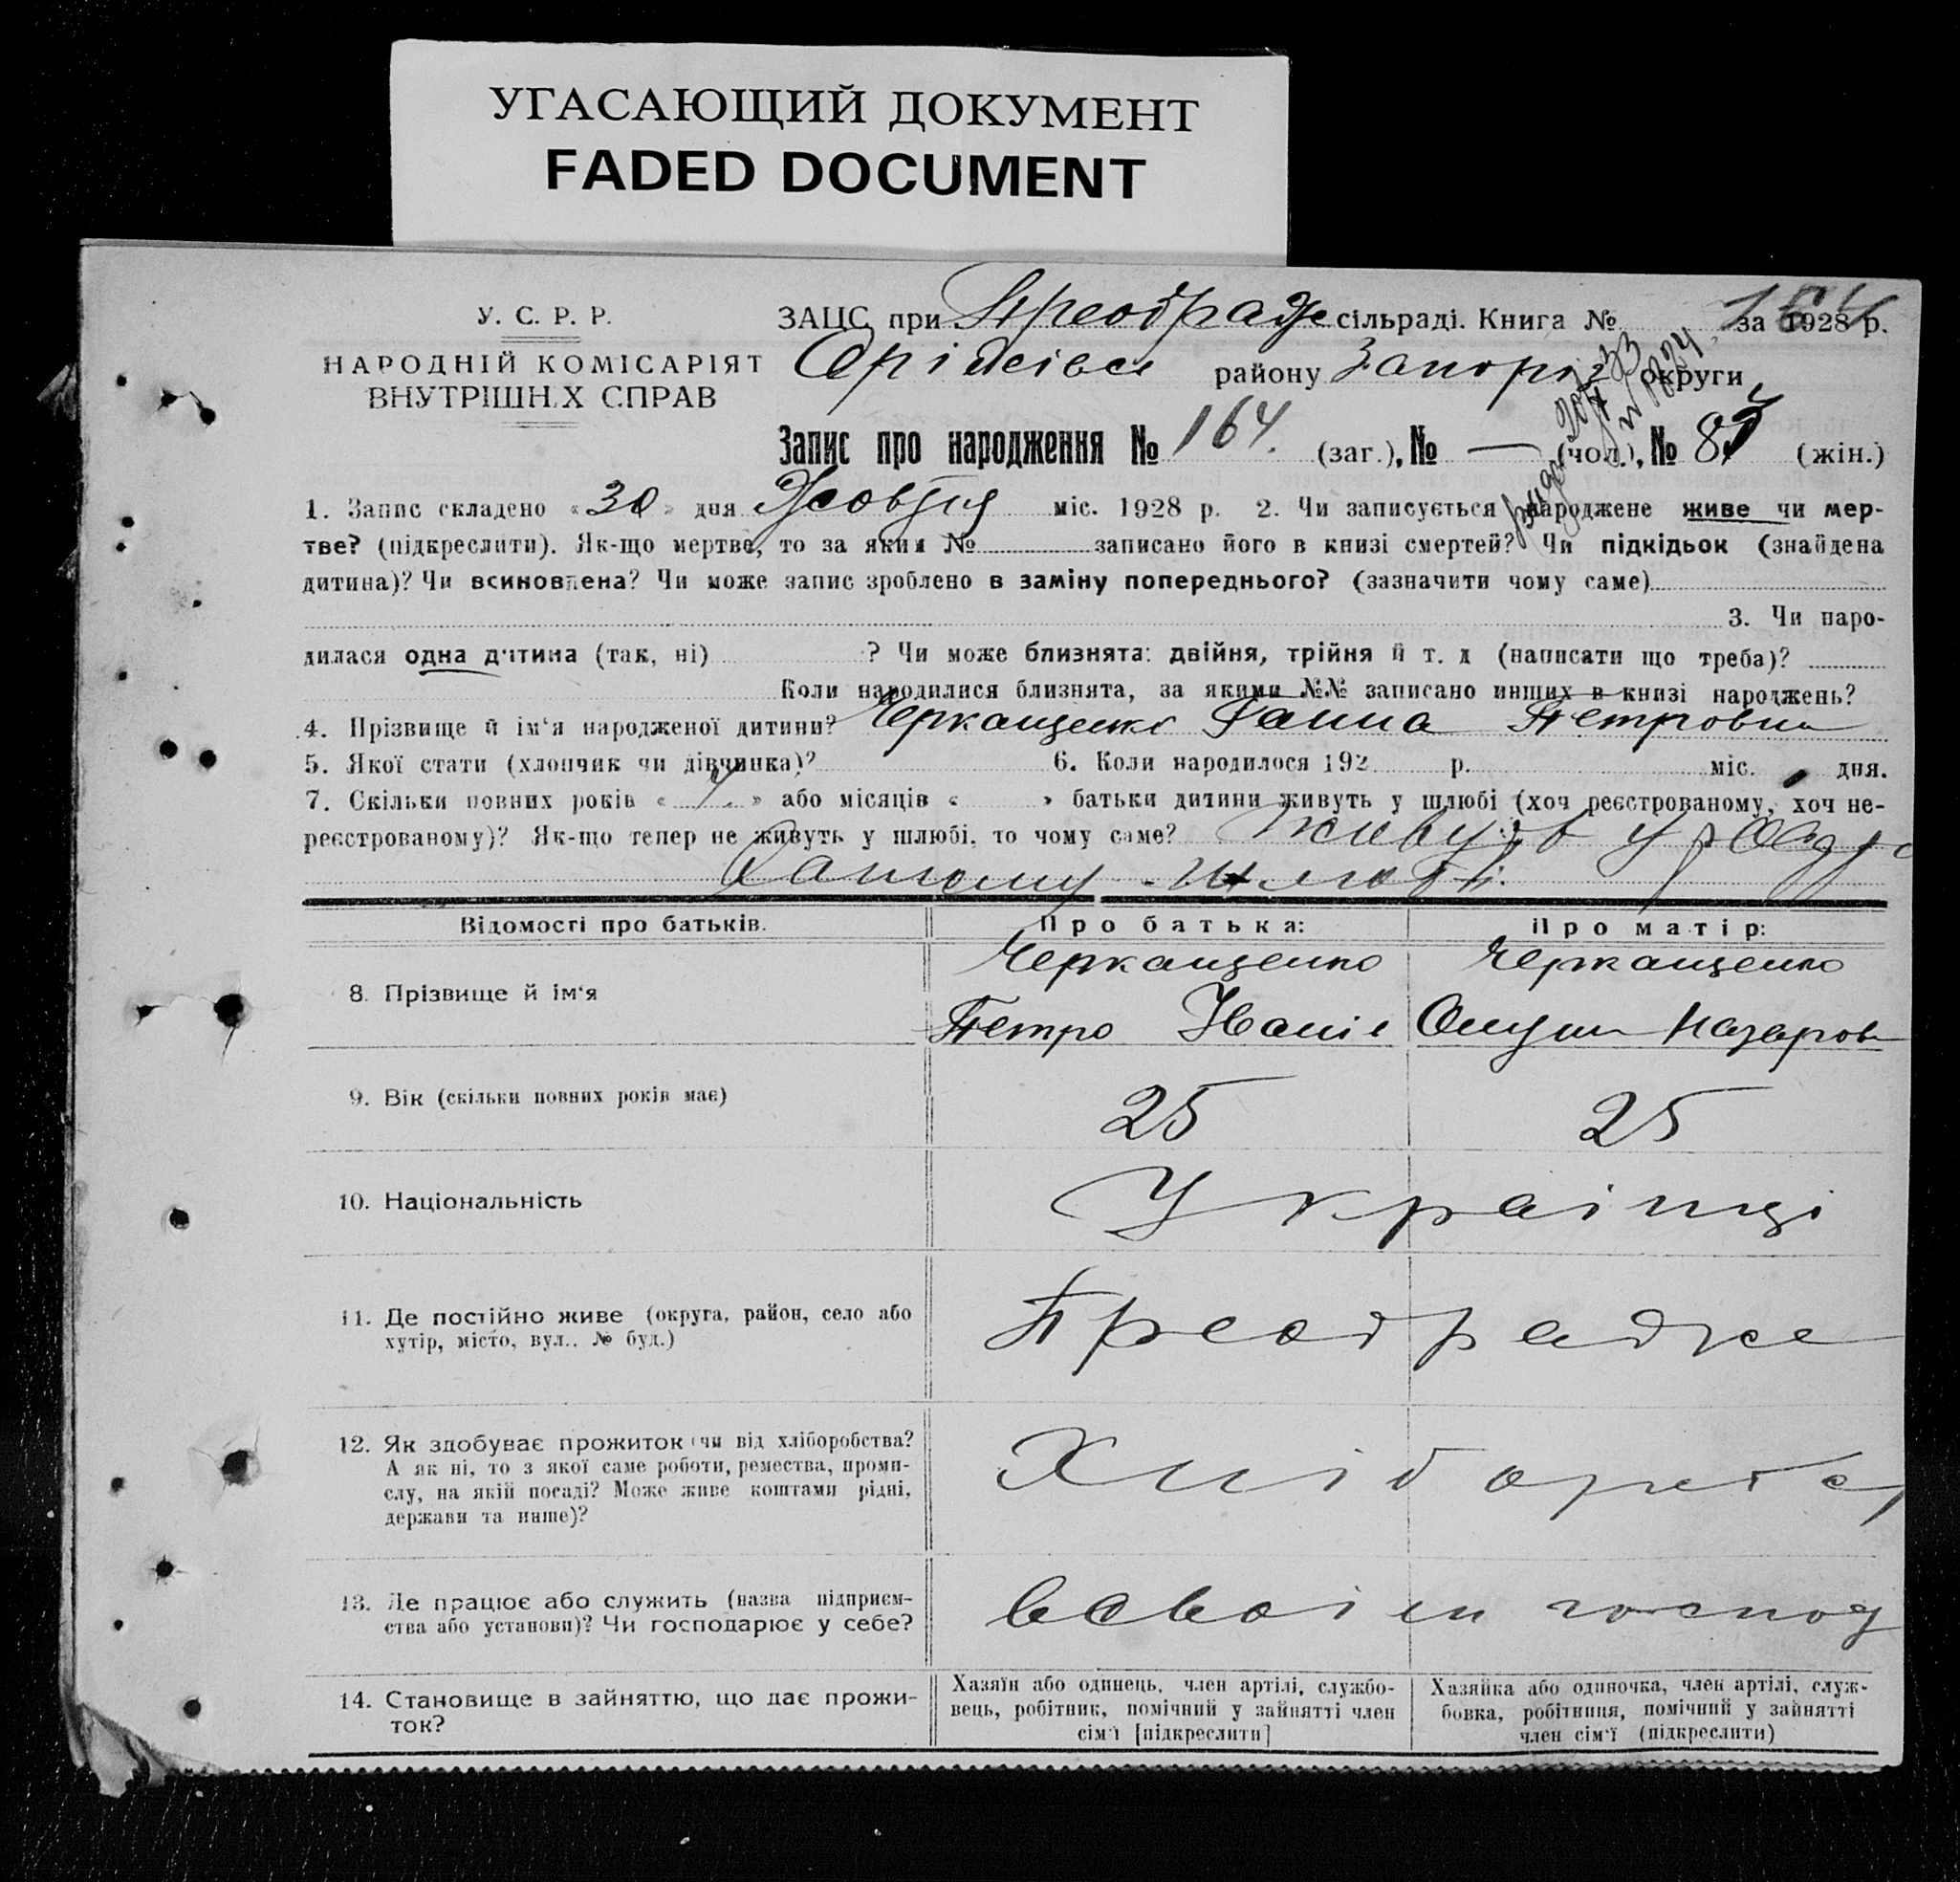 УГАСАЮЩИЙ ДОКУМЕНТ
FADED DOCUMENT
У. С. Р. Р.
НАРОДНІЙ КОМІСАРІЯТ
ВНУТРІШНІХ СПРАВ
ЗАЦС при Преображе сільраді. Книга № за 1928 р.
Оріхівсь району Запоріз округи
Запис про народження № 164. (заг.), № — (чол.), № 83 (жін.)
1. Запис складено «30» дня Жовтня міс. 1928 р. 2. Чи записується народжене живе чи мер-
тве? (підкреслити). Як-що мертве, то за яким № записано його в книзі смертей? Чи підкідьок (знайдена
дитина)? Чи всиновлена? Чи може запис зроблено в заміну попереднього? (зазначити чому саме)
3. Чи наро-
дилася одна дитина (так, ні) ? Чи може близнята: двійня, трійня й т. д (написати що треба)?
Коли народилися близнята, за якими №№ записано инших в книзі народжень?
4. Прізвище й ім'я народженої дитини? Черкащенко Ганна Петровна
5. Якої стати (хлопчик чи дівчинка)? 6. Коли народилося 192 р. міс. дня.
7. Скільки повних років « » або місяців « » батьки дитини живуть у шлюбі (хоч реєстрованому, хоч не-
реєстрованому)? Як-що тепер не живуть у шлюбі, то чому саме? живуть у
шлюбі.
Відомості про батьків. Про батька: Про матір:
8. Прізвище й ім'я Черкащенко Черкащенко
Петро Іванів Назаров
9. Вік (скільки повних років має) 25 25
10. Національність Українці
11. Де постійно живе (округа, район, село або
хутір, місто, вул.. № буд.) Преображе
12. Як здобуває прожиток (чи від хліборобства?
А як ні, то з якої саме роботи, ремества, проми-
слу, на якій посаді? Може живе коштами рідні,
держави та инше)? Хліборобс
13. Де працює або служить (назва підприєм-
ства або установи)? Чи господарює у себе? в своїм господ
14. Становище в зайняттю, що дає прожи-
ток?
Хазяїн або одинець, член артілі, службо-
вець, робітник, помічний у зайнятті член
сім'ї [підкреслити]
Хазяйка або одиночка, член артілі, служ-
бовка, робітниця, помічний у зайнятті
член сім'ї (підкреслити)